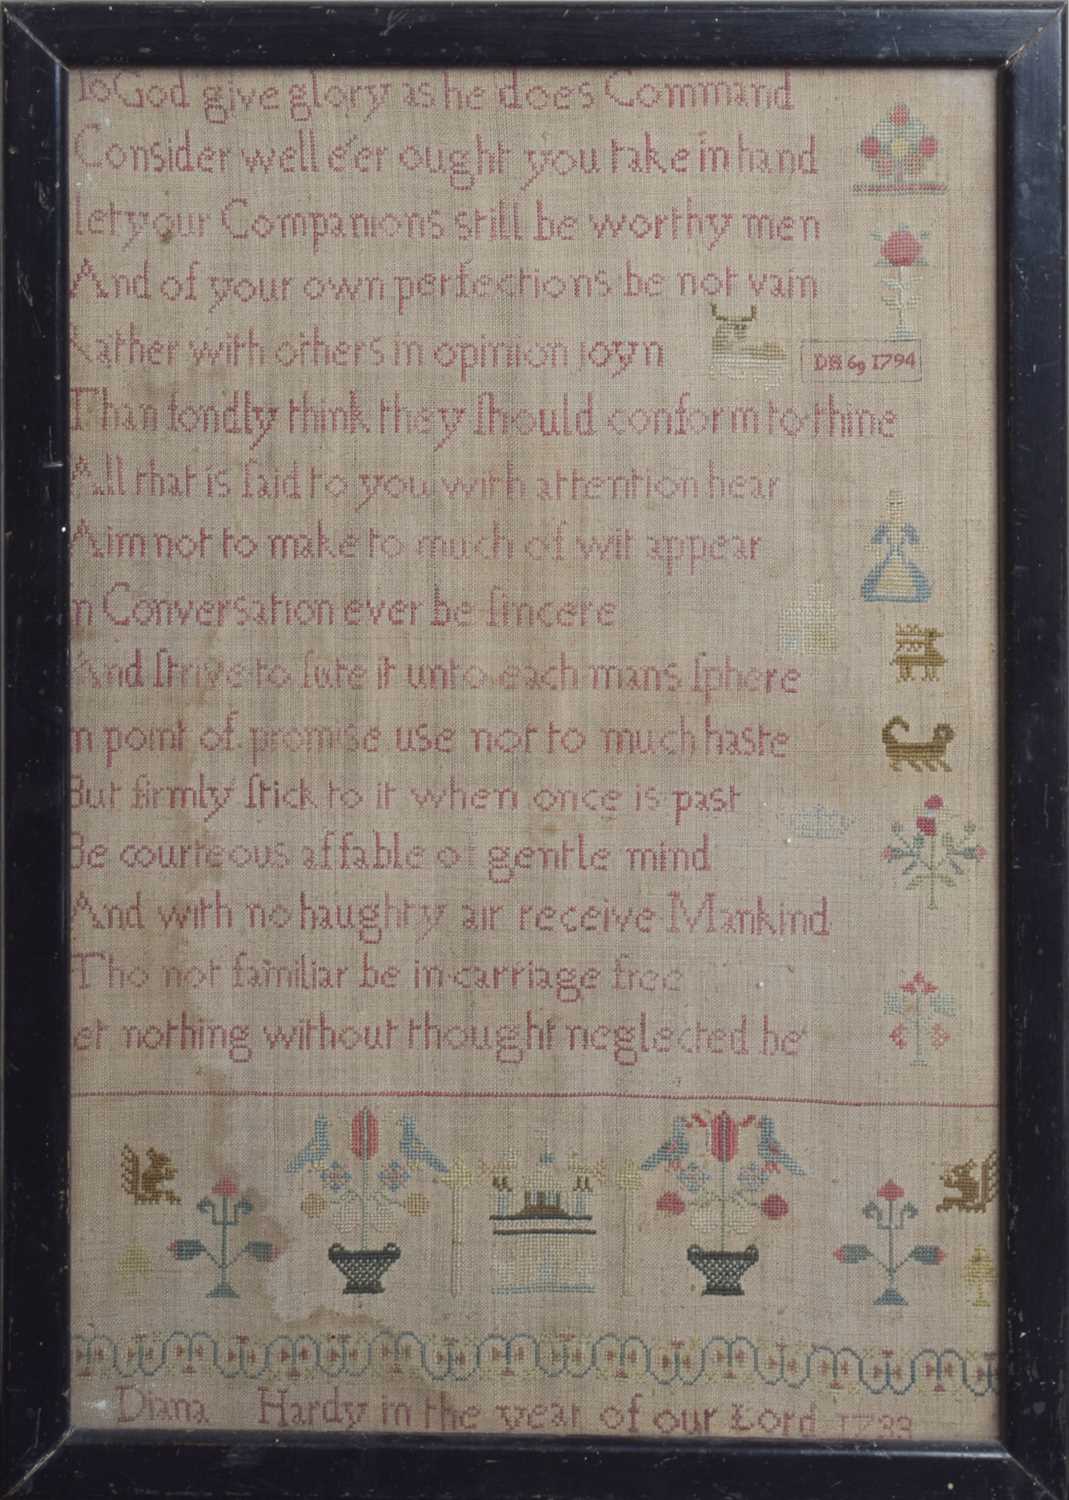 To God give glory as he does Command
Consider well e'er ought you take in hand
let your Companions still be worthy men
And of your own perfections be not vain
Rather with others in opinion joyn
DH 69 1794
Than fondly think they ſhould conform to thine
All that is ſaid to you with attention hear
Aim not to make to much of wit appear
in Conversation ever be ſincere
And ſtrive to ſute it unto each mans ſphere
in point of promise use not to much haste
But firmly ſtick to it when once is past
Be courteous affable of gentle mind
And with no haughty air receive Mankind
Tho not familiar be in carriage free
et nothing without thought neglected be
Diana Hardy in the year of our Lord 1733